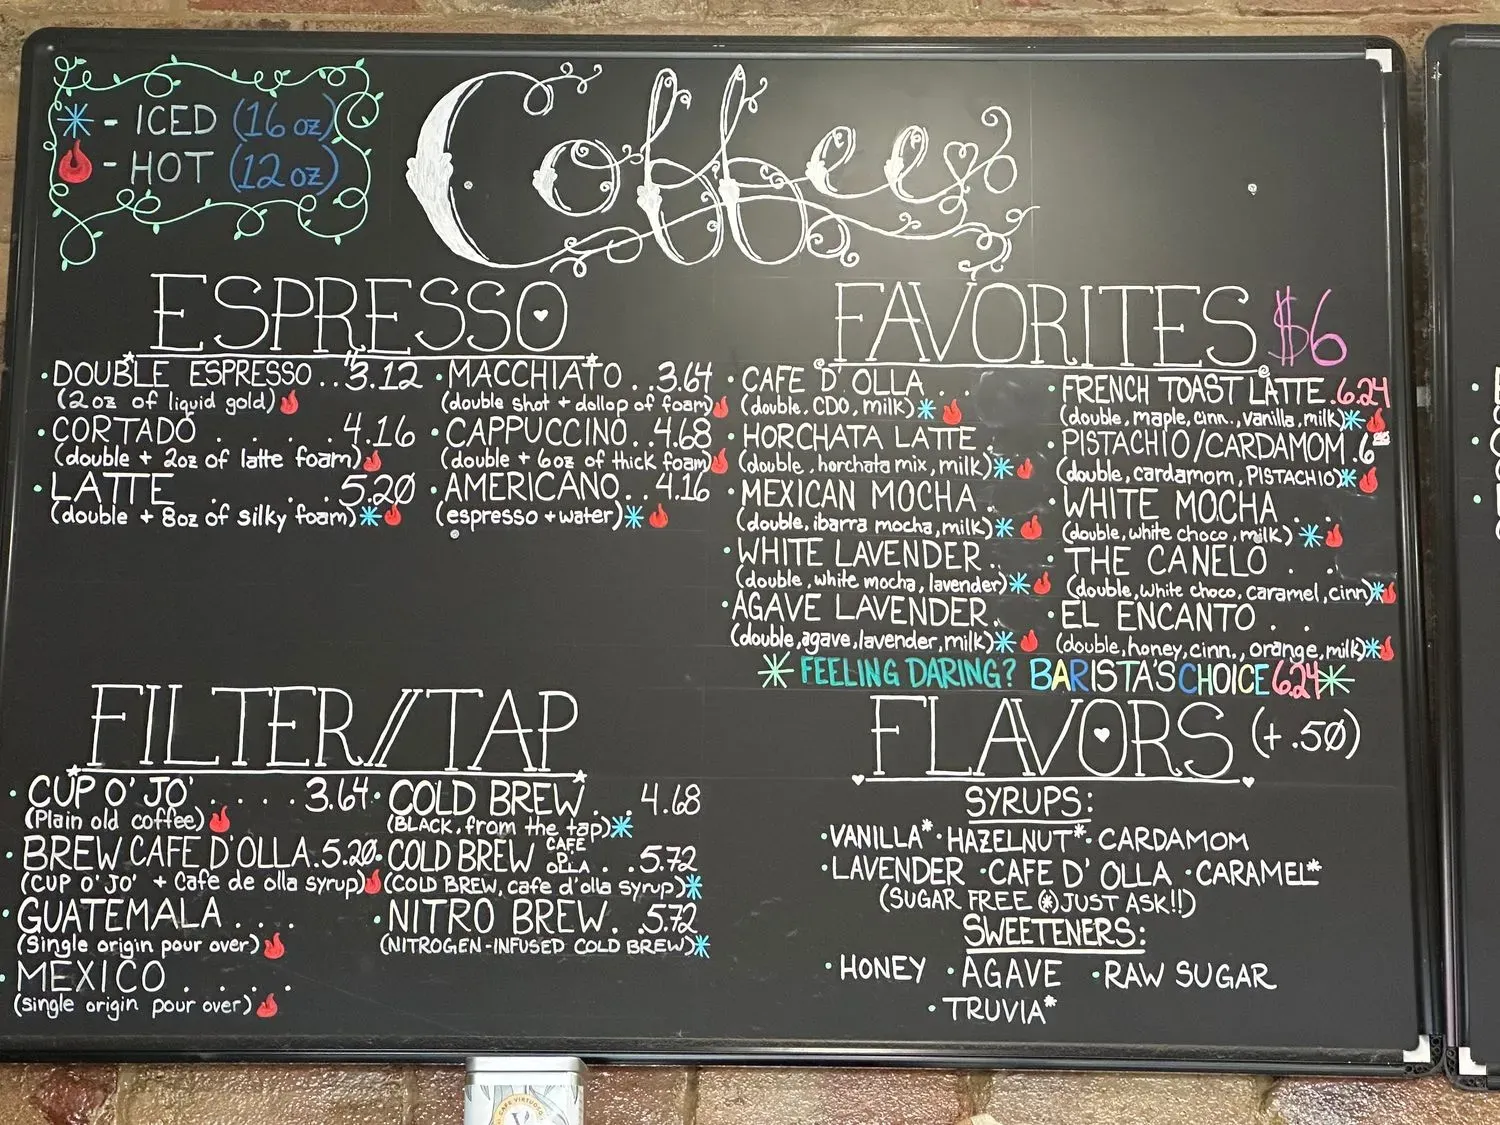 ICED (16 oz)
HOT (12 oz)
Coffee
ESPRESSO
DOUBLE ESPRESSO..3.12
(2 oz of liquid gold)
CORTADO . . . . . 4.16
(double + 2oz of latte foam)
LATTE . . . . 5.20
(double + 8oz of silky foam)
MACCHIATO..3.64
(double shot + dollop of foam)
CAPPUCCINO..4.68
(double + 6oz of thick foam)
AMERICANO..4.16
(espresso + water)
FAVORITES $6
CAFE D'OLLA . .
(double, CDO, milk)
HORCHATA LATTE .
(double, horchata mix, milk)
MEXICAN MOCHA .
(double, ibarra mocha, milk)
WHITE LAVENDER..
(double, white mocha, lavender)
AGAVE LAVENDER.
(double, agave, lavender, milk)
FRENCH TOAST LATTE.6.24
(double, maple, cinn., vanilla, milk)
PISTACHIO/CARDAMOM.6
(double, cardamom, PISTACHIO)
WHITE MOCHA . .
(double, white choco, milk)
THE CANELO . .
(double, white choco, caramel, cinn)
EL ENCANTO . .
(double, honey, cinn., orange, milk)
FEELING DARING? BARISTA'S CHOICE 6.24
FILTER//TAP
CUP O' JO' . . . . 3.64
(Plain old coffee)
BREW CAFE D'OLLA.5.20
(CUP O' JO' + Cafe de olla syrup)
GUATEMALA . . .
(Single origin pour over)
MEXICO . . . .
(single origin pour over)
COLD BREW . . . 4.68
(BLACK, from the tap)
COLD BREW CAFE D' OLLA . . 5.72
(COLD BREW, cafe d'olla syrup)
NITRO BREW. .5.72
(NITROGEN-INFUSED COLD BREW)
FLAVORS (+.50)
SYRUPS:
VANILLA* · HAZELNUT* · CARDAMOM
· LAVENDER · CAFE D' OLLA · CARAMEL*
(SUGAR FREE (*) JUST ASK!!)
SWEETENERS:
· HONEY · AGAVE · RAW SUGAR
· TRUVIA*
CAFE VIRTUOSO